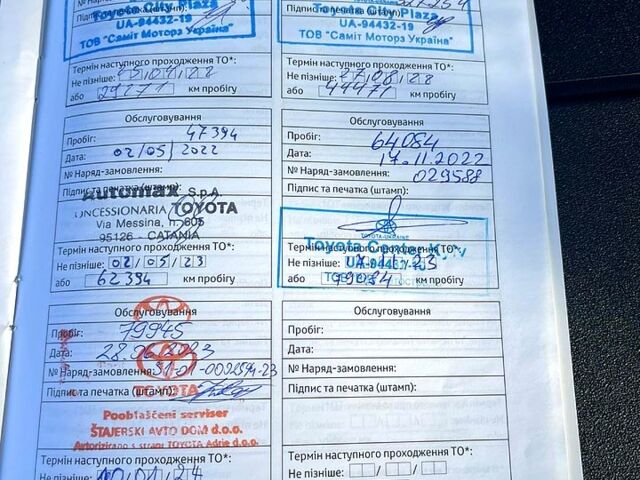 Toyota City Plaza
UA-94432-19
ТОВ "Саміт Моторз Україна"
Термін наступного проходження ТО*:
Не пізніше:
або 29271 км пробігу
Toyota City Plaza
UA-94432-19
ТОВ "Саміт Моторз Україна"
Термін наступного проходження ТО*:
Не пізніше: 27/08/22
або 44471 км пробігу
Обслуговування
Пробіг: 47394
Дата: 02/05/2022
№ Наряд-замовлення:
Підпис та печатка (штамп):
automax S.p.A.
CONCESSIONARIA TOYOTA
Via Messina, n. 605
95126 - CATANIA
Термін наступного проходження ТО*:
Не пізніше: 02/05/23
або 62394 км пробігу
Обслуговування
Пробіг: 64084
Дата: 17.11.2022
№ Наряд-замовлення: 029588
Підпис та печатка (штамп):
Toyota Center
Термін наступного проходження ТО*:
Не пізніше:
або 79084 км пробігу
Обслуговування
Пробіг: 79945
Дата: 28.06.2023
№ Наряд-замовлення: 51-01-0092594-23
Підпис та печатка (штамп):
TOYOTA
Pooblaščeni serviser
ŠTAJERSKI AVTO DOM d.o.o.
Avtorizirano s strani TOYOTA Adria d.o.o.
Термін наступного проходження ТО*:
Не пізніше: 10/01/24
Обслуговування
Пробіг:
Дата:
№ Наряд-замовлення:
Підпис та печатка (штамп):
Термін наступного проходження ТО*:
Не пізніше: